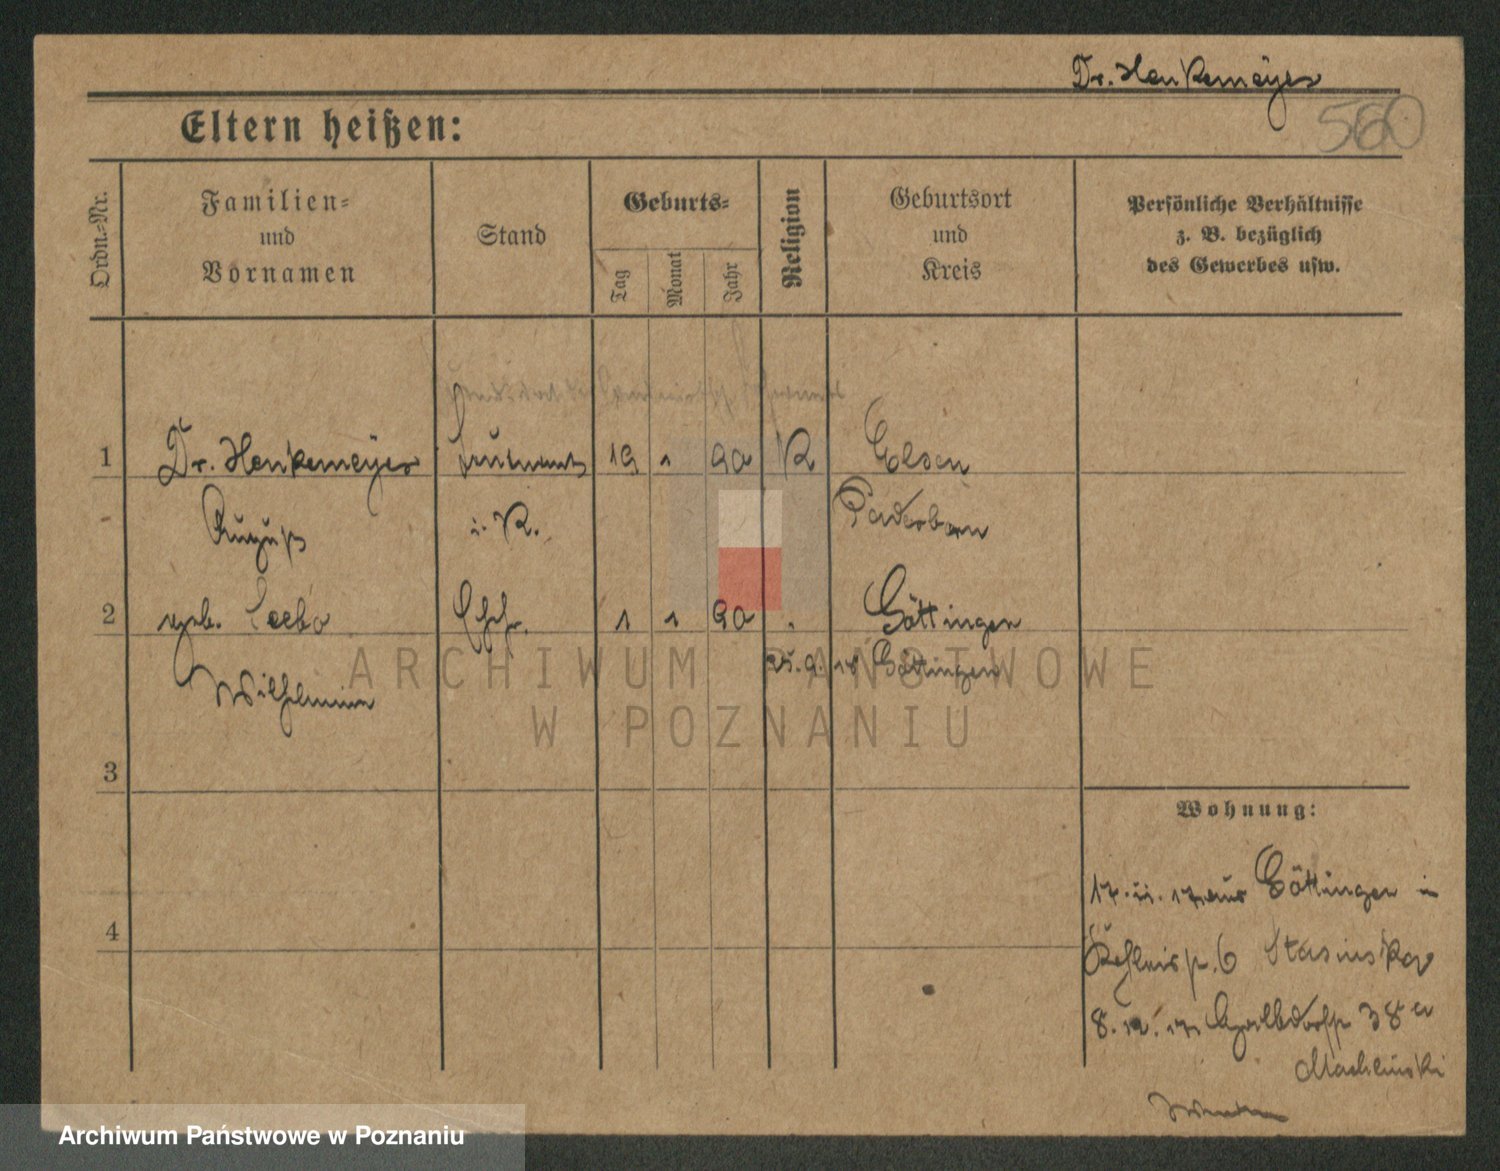 Dr. Henkemeyer
560
Eltern heißen:
Ordn.-Nr.
Familien-
und
Vornamen
Stand
Geburts-
Tag
Monat
Jahr
Religion
Geburtsort
und
Kreis
Persönliche Verhältnisse
z. B. bezüglich
des Gewerbes usw.
1 Dr. Henkemeyer Leutnant 19 1 90 K Elsen
August i. R. Paderborn
2 geb. Ehefr. 1 1 90 Göttingen
25. 9. 18 Göttingen
Wilhelmine
ARCHIWUM PAŃSTWOWE
W POZNANIU
3
Wohnung:
17. 11. 17 aus Göttingen in
6 Stasinska
4
8. 12. 17 38a
Archiwum Państwowe w Poznaniu